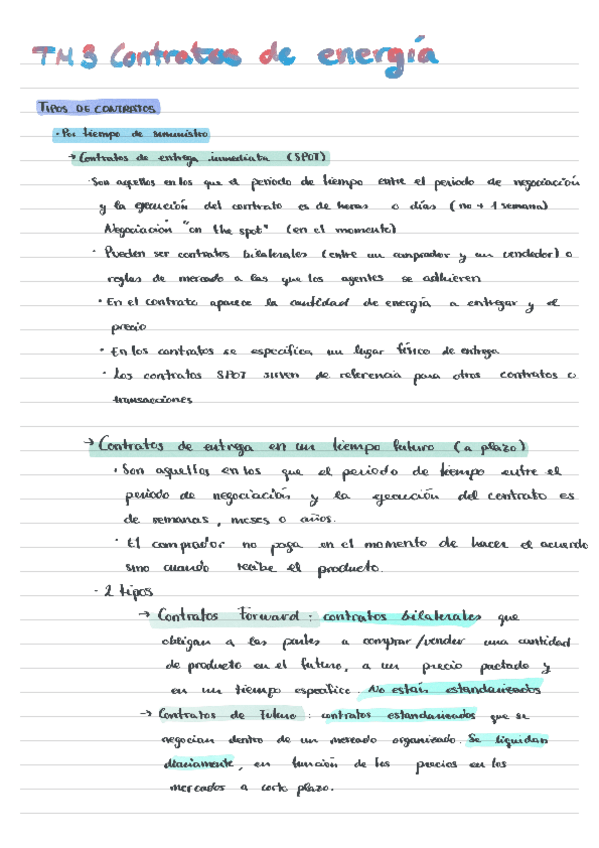 TM 3 Contratos de energía
TIPOS DE CONTRATOS
· Por tiempo de suministro
→ Contratos de entrega inmediata (SPOT)
· Son aquellos en los que el periodo de tiempo entre el periodo de negociación
y la ejecución del contrato es de horas o días (no + 1 semana)
Negociación "on the spot" (en el momento)
· Pueden ser contratos bilaterales (entre un comprador y un vendedor) o
reglas de mercado a las que los agentes se adhieren
· En el contrato aparece la cantidad de energía a entregar y el
precio
· En los contratos se especifica un lugar físico de entrega
· Los contratos SPOT sirven de referencia para otros contratos o
transacciones
→ Contratos de entrega en un tiempo futuro (a plazo)
· Son aquellos en los que el periodo de tiempo entre el
periodo de negociación y la ejecución del contrato es
de semanas, meses o años.
· El comprador no paga en el momento de hacer el acuerdo
sino cuando recibe el producto.
· 2 tipos
→ Contratos Forward: contratos bilaterales que
obligan a las partes a comprar/vender una cantidad
de producto en el futuro, a un precio pactado y
en un tiempo específico. No están estandarizados
→ Contratos de Futuro: contratos estandarizados que se
negocian dentro de un mercado organizado. Se liquidan
diariamente, en función de los precios en los
mercados a corto plazo.